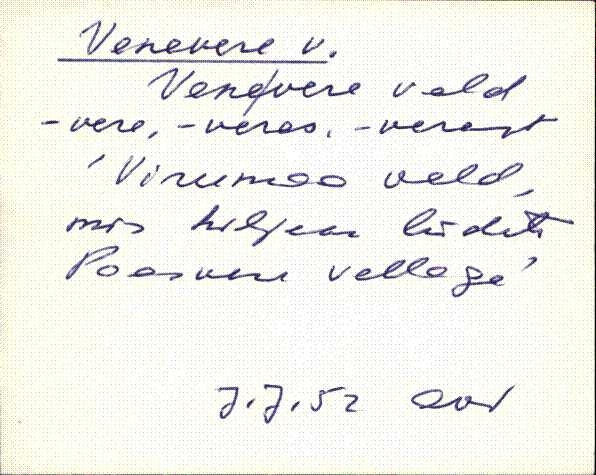 Venevere v.
Vene/vere vald
-vere, -veres, -verest
'Virumaa vald,
mis hiljem liideti
Paasvere vallaga'
J.J.52